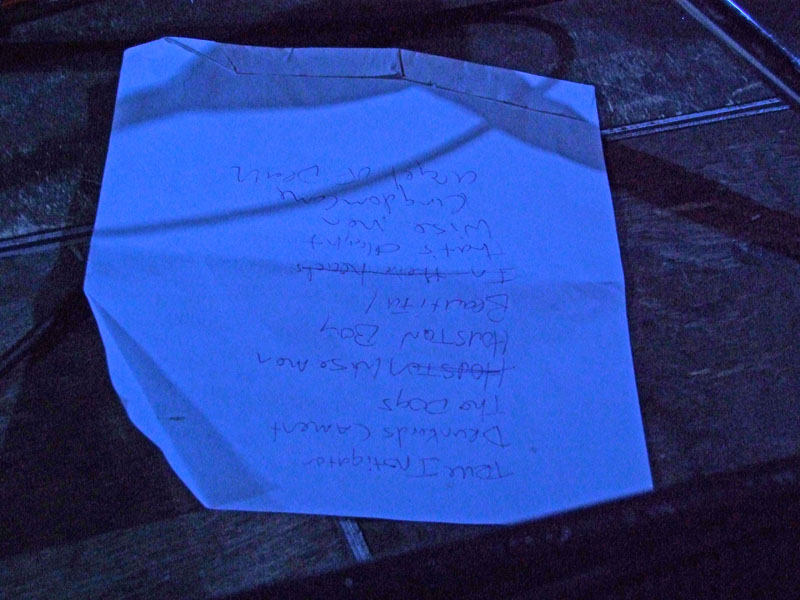 True Instigator
Drunkards Lament
The Dogs
Houston/Wise men
Houston Boy
Beautiful
In their heads
That's Alright
Wise men
Kingdom Come
Angel of Death